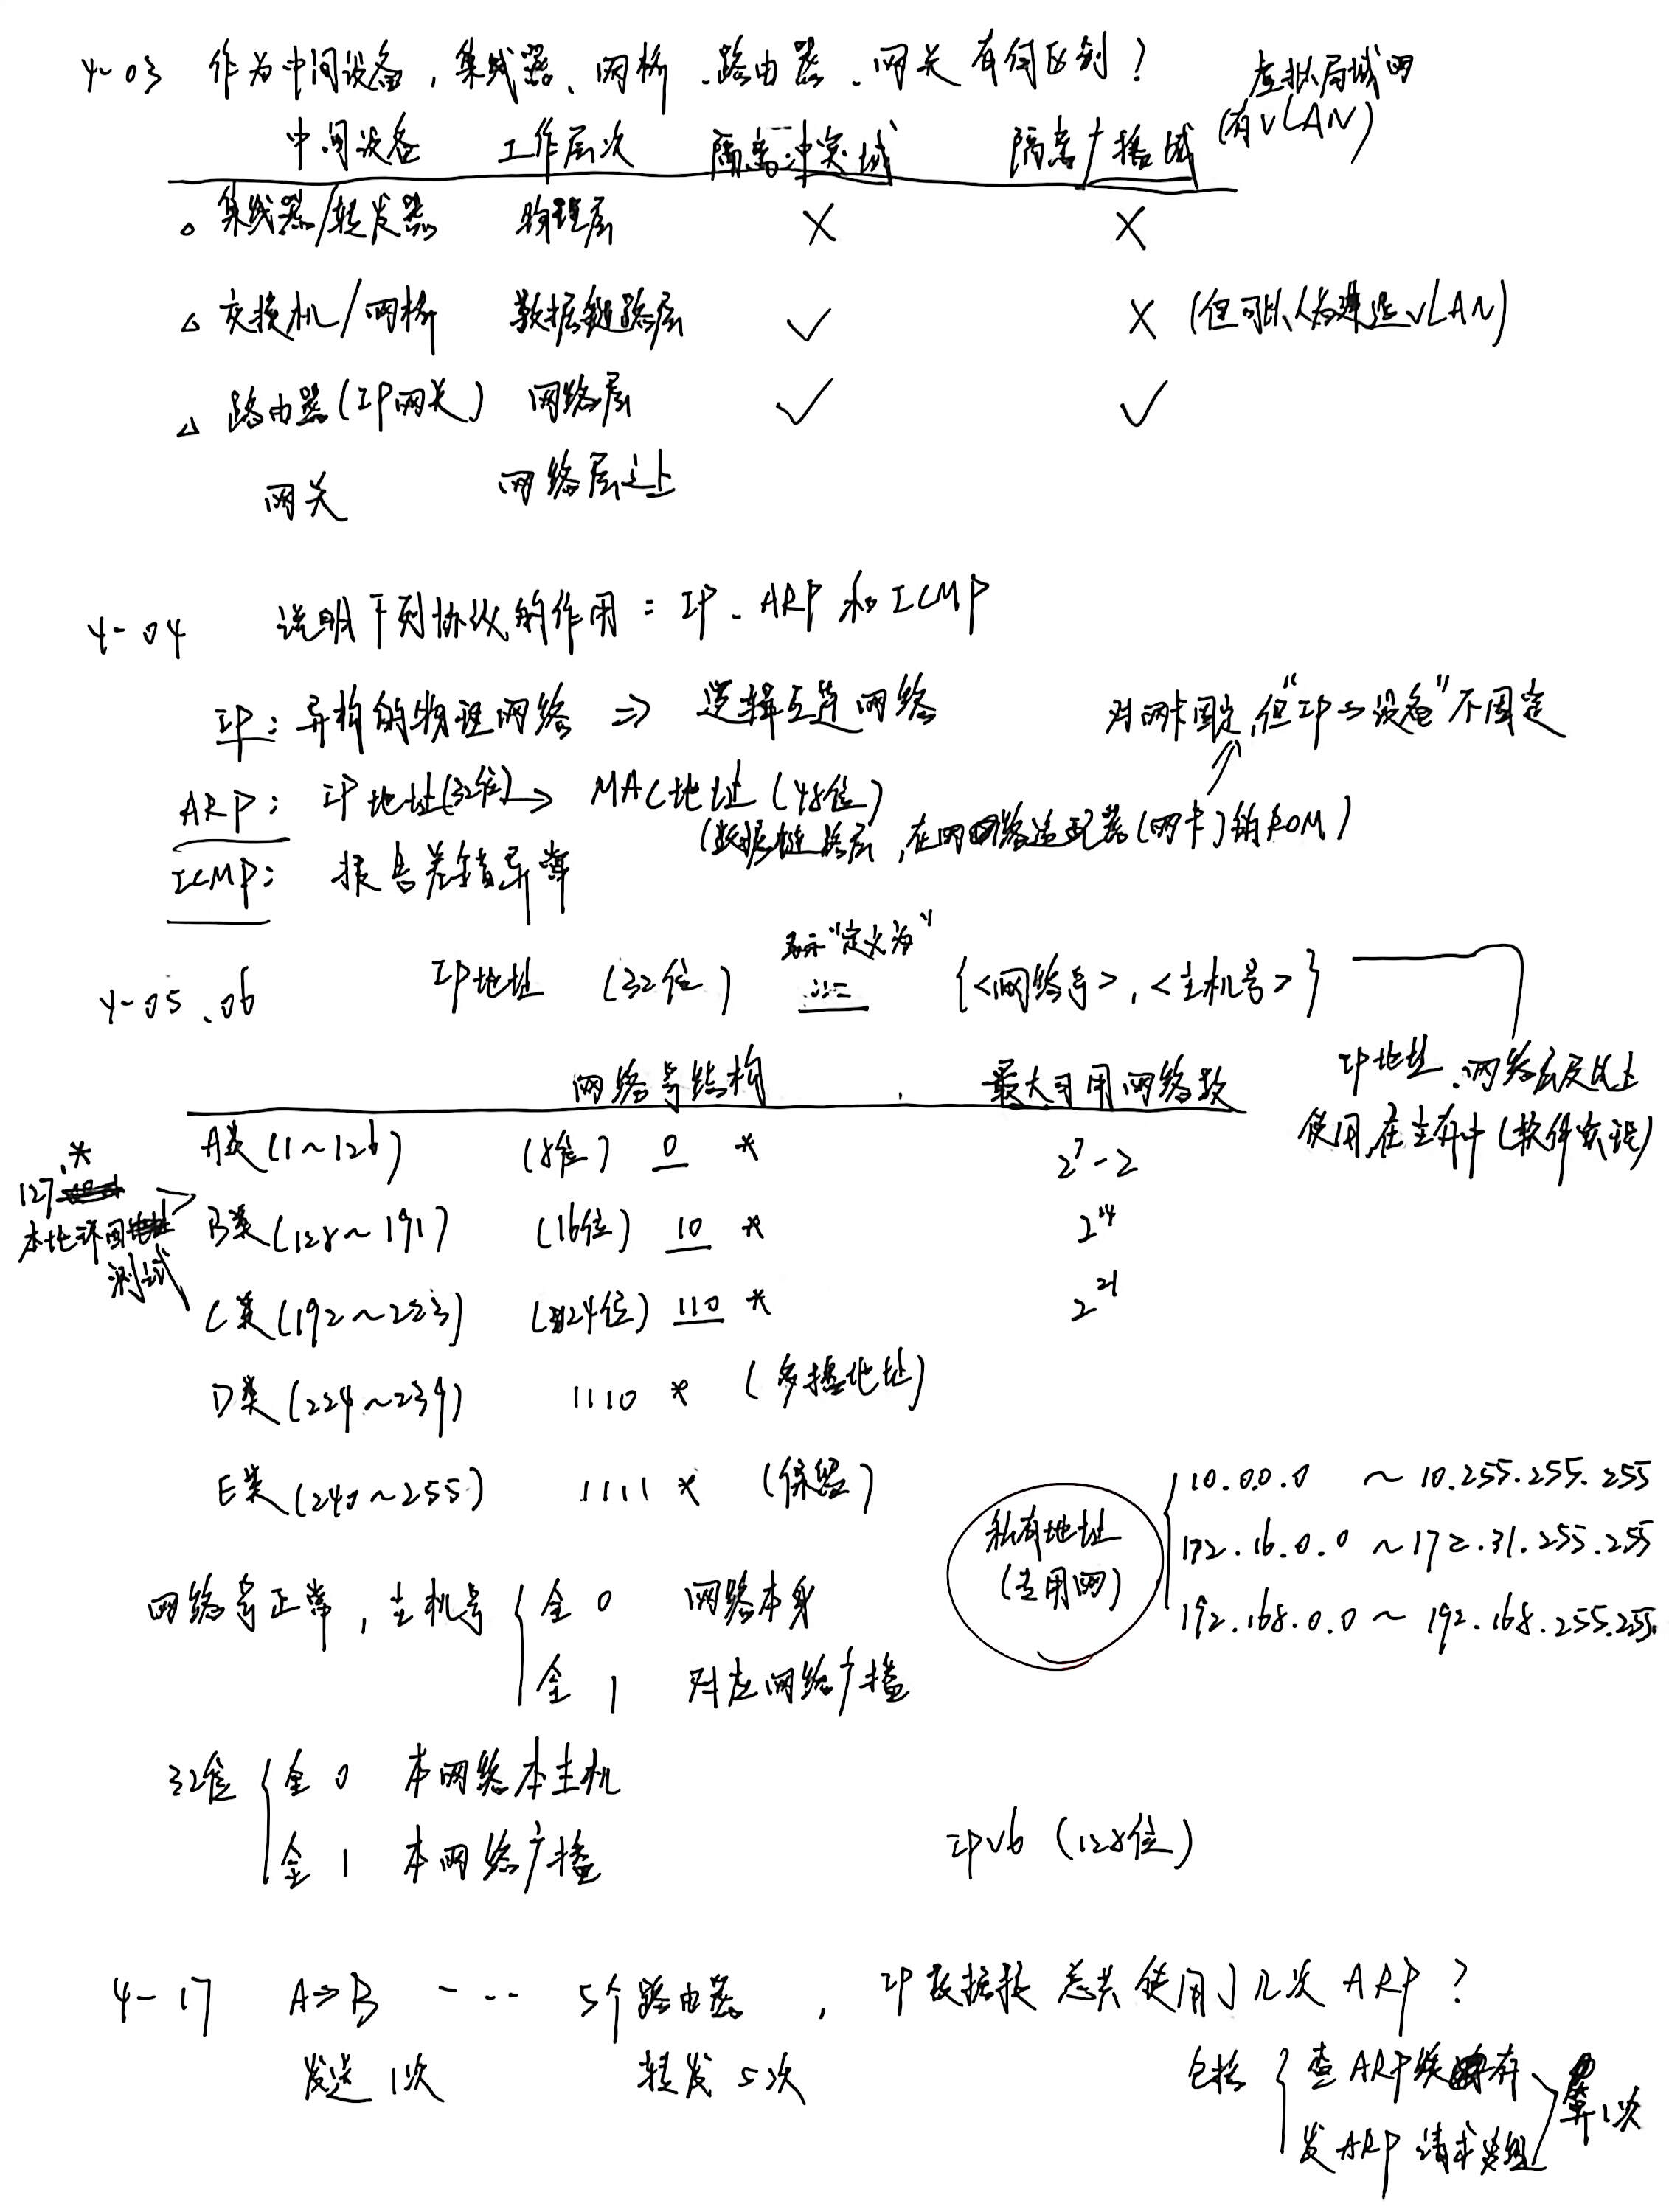 4-03 作为中间设备，集线器、网桥、路由器、网关有何区别？
虚拟局域网
(有VLAN)
中间设备 工作层次 隔离冲突域 隔离广播域
集线器/转发器 物理层 × ×
△ 交换机/网桥 数据链路层 ✓ × (但可以人为建造VLAN)
△ 路由器(IP网关) 网络层 ✓ ✓
网关 网络层之上
4-04 说明下列协议的作用：IP、ARP和ICMP
IP：异构的物理网络 ⇒ 逻辑互连网络
对网卡固定，但"IP→设备"不固定
ARP：IP地址(32位) → MAC地址(48位)
(数据链路层，在网络适配器(网卡)的ROM)
ICMP：报告差错异常
表示"定义为"
4-05、06 IP地址 (32位) ::= {<网络号>，<主机号>}
IP地址、网络层及以上
使用，在主存中(软件实现)
网络号结构 最大可用网络数
A类(1~126) (8位) 0 * 2^7-2
127.*
本地环回
测试
B类(128~191) (16位) 10 * 2^14
C类(192~223) (24位) 110 * 2^21
D类(224~239) 1110 * (多播地址)
E类(240~255) 1111 * (保留)
私有地址
(专用网)
10.0.0.0 ~ 10.255.255.255
172.16.0.0 ~ 172.31.255.255
192.168.0.0 ~ 192.168.255.255
网络号正常，主机号 { 全0 网络本身
全1 对应网络广播
32位 { 全0 本网络本主机
全1 本网络广播
IPv6 (128位)
4-17 A→B --- 5个路由器，IP数据报总共使用了几次ARP？
发送1次 转发5次
包括 { 查ARP缓存
发ARP请求分组
算1次